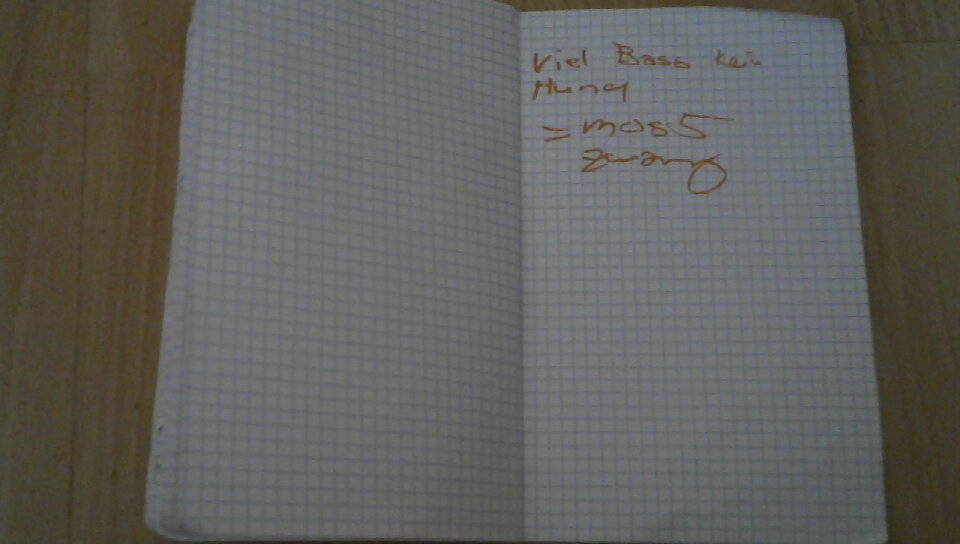 Viel Bass kein
Hung
= mos5
zwang